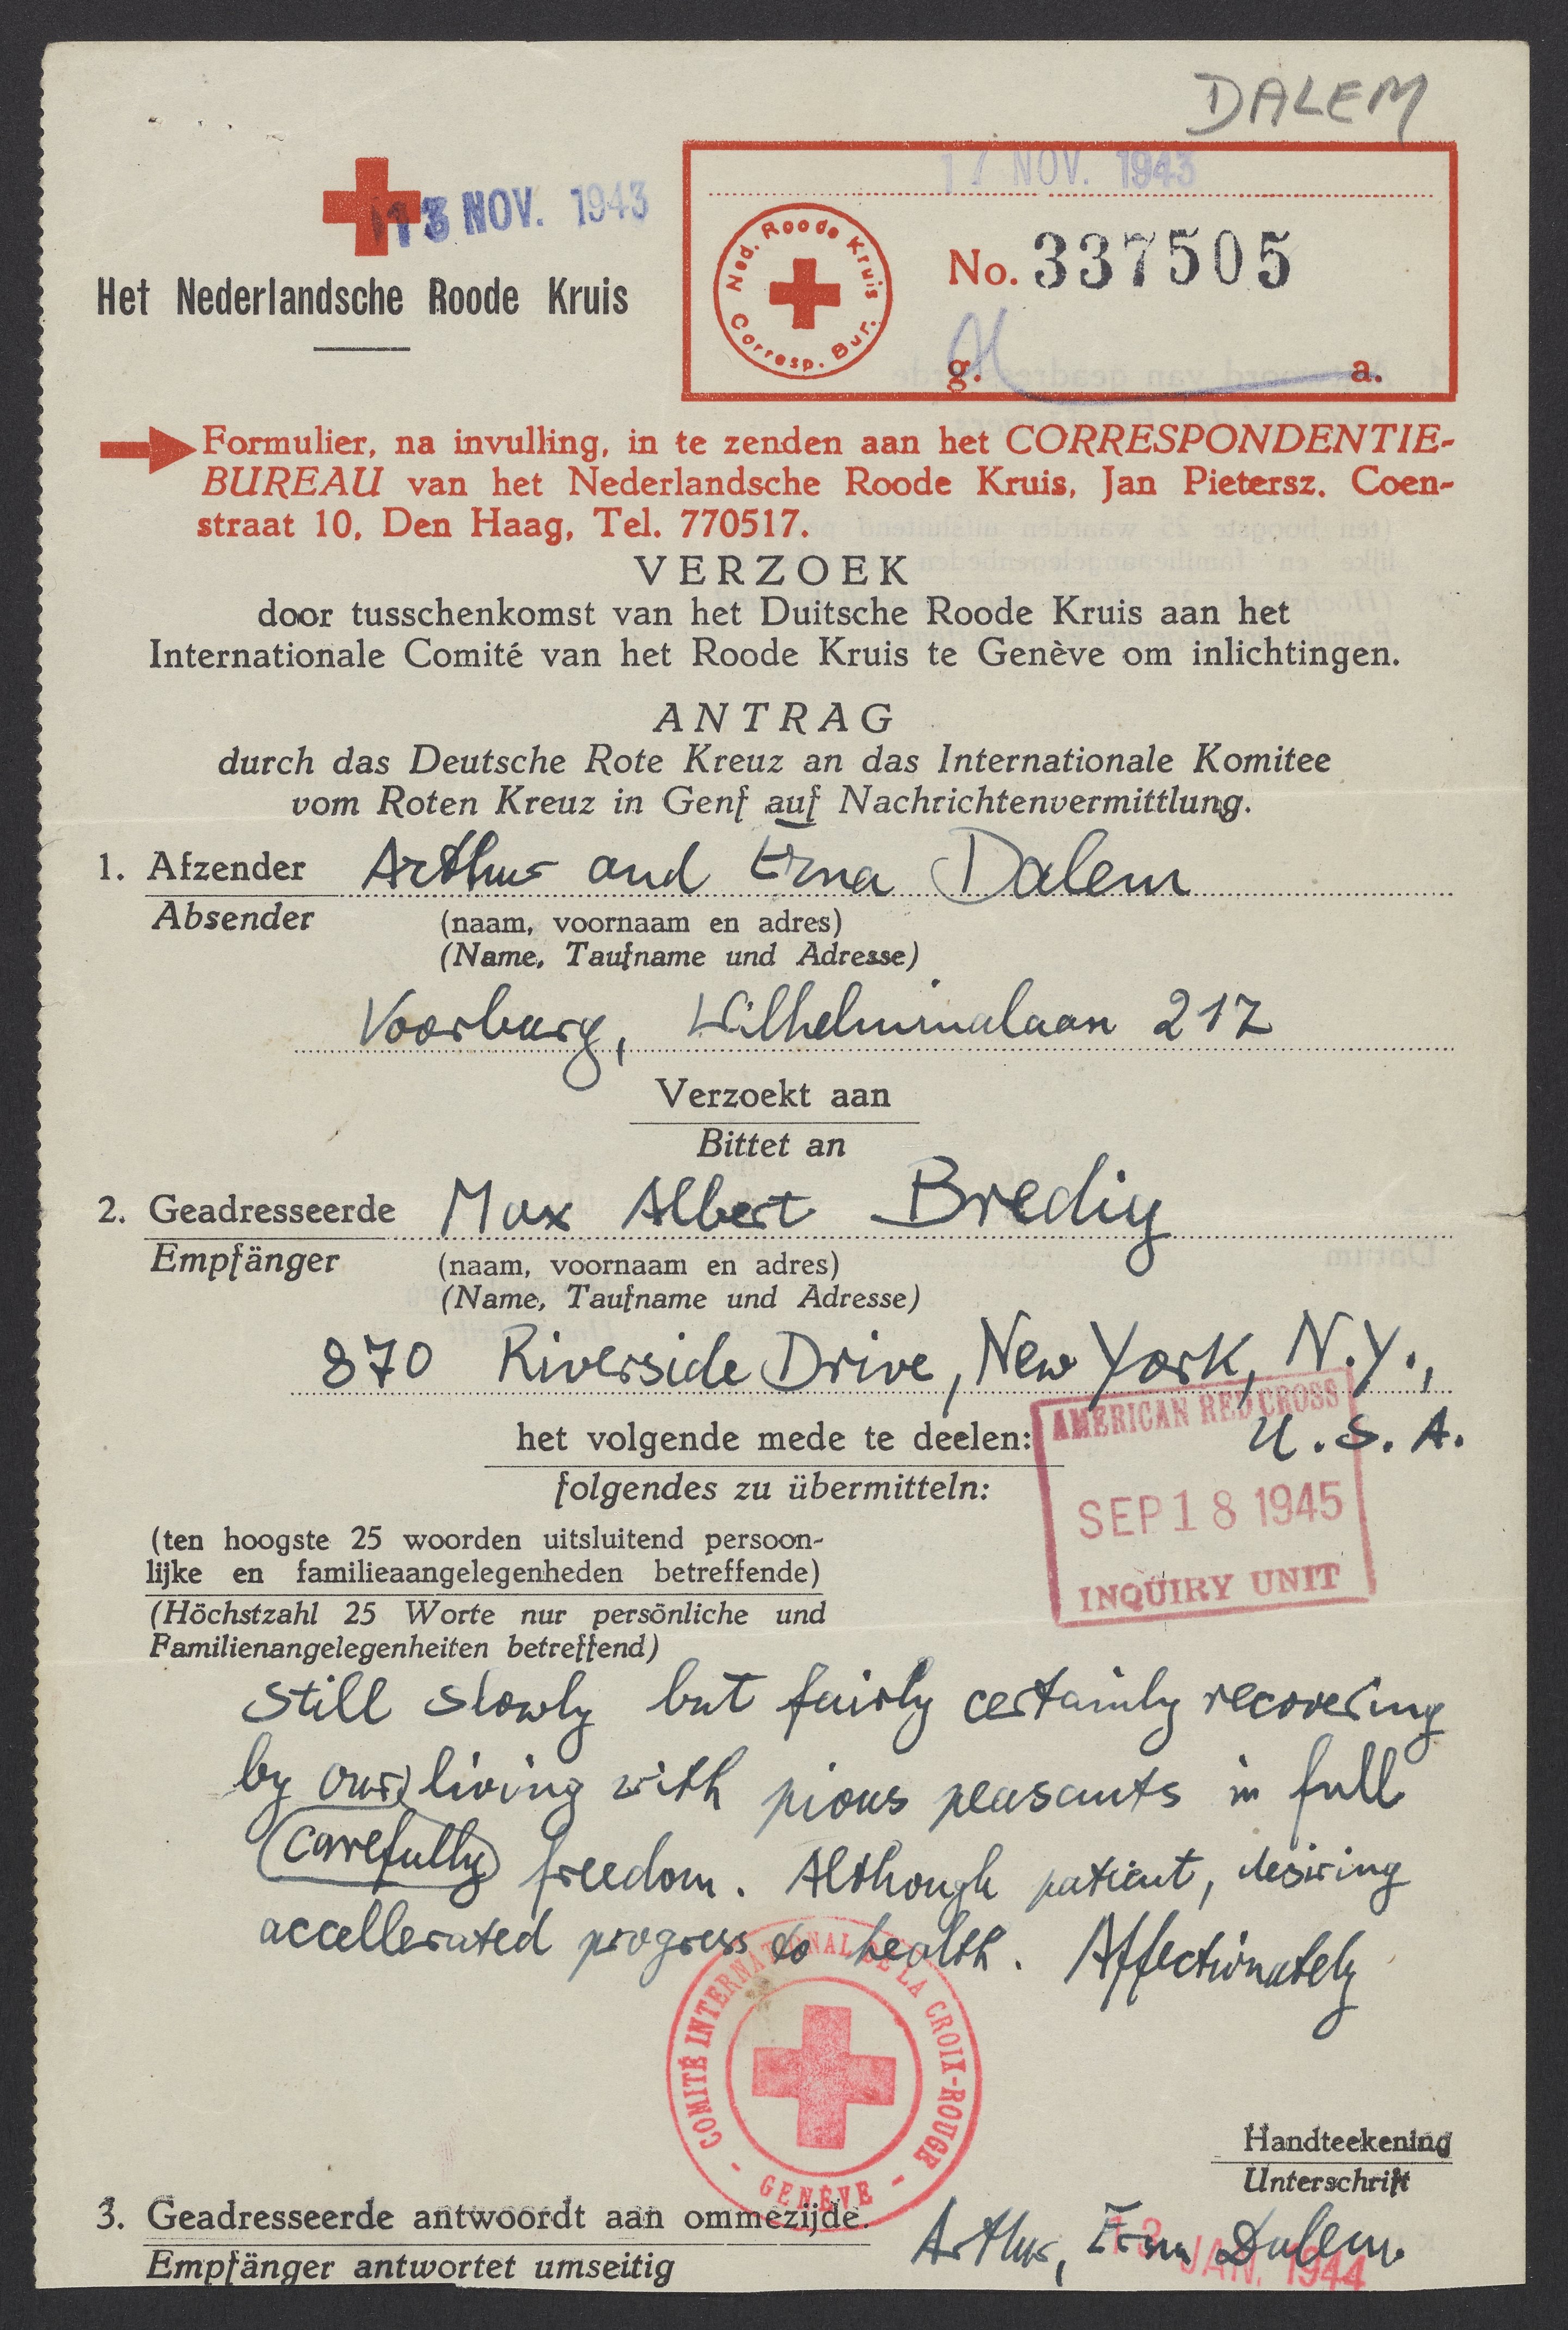 DALEM
13 NOV. 1943
17 NOV. 1943
Het Nederlandsche Roode Kruis
Ned. Roode Kruis
Corresp. Bur.
No. 337505
g. a.
Formulier, na invulling, in te zenden aan het CORRESPONDENTIE-
BUREAU van het Nederlandsche Roode Kruis, Jan Pietersz. Coen-
straat 10, Den Haag, Tel. 770517.
VERZOEK
door tusschenkomst van het Duitsche Roode Kruis aan het
Internationale Comité van het Roode Kruis te Genève om inlichtingen.
ANTRAG
durch das Deutsche Rote Kreuz an das Internationale Komitee
vom Roten Kreuz in Genf auf Nachrichtenvermittlung.
1. Afzender Arthur and Erna Dalem
Absender (naam, voornaam en adres)
(Name, Taufname und Adresse)
Voorburg, Wilhelminalaan 217
Verzoekt aan
Bittet an
2. Geadresseerde Max Albert Bredig
Empfänger (naam, voornaam en adres)
(Name, Taufname und Adresse)
870 Riverside Drive, New York, N.Y.,
U.S.A.
het volgende mede te deelen:
folgendes zu übermitteln:
AMERICAN RED CROSS
SEP 18 1945
INQUIRY UNIT
(ten hoogste 25 woorden uitsluitend persoon-
lijke en familieaangelegenheden betreffende)
(Höchstzahl 25 Worte nur persönliche und
Familienangelegenheiten betreffend)
Still slowly but fairly certainly recovering
by our living with pious peasants in full
carefully freedom. Although patient, desiring
accellerated progress to health. Affectionately
COMITÉ INTERNATIONAL DE LA CROIX-ROUGE
- GENÈVE -
Handteekening
Unterschrift
3. Geadresseerde antwoordt aan ommezijde.
Empfänger antwortet umseitig
Arthur, Erna Dalem.
JAN. 1944